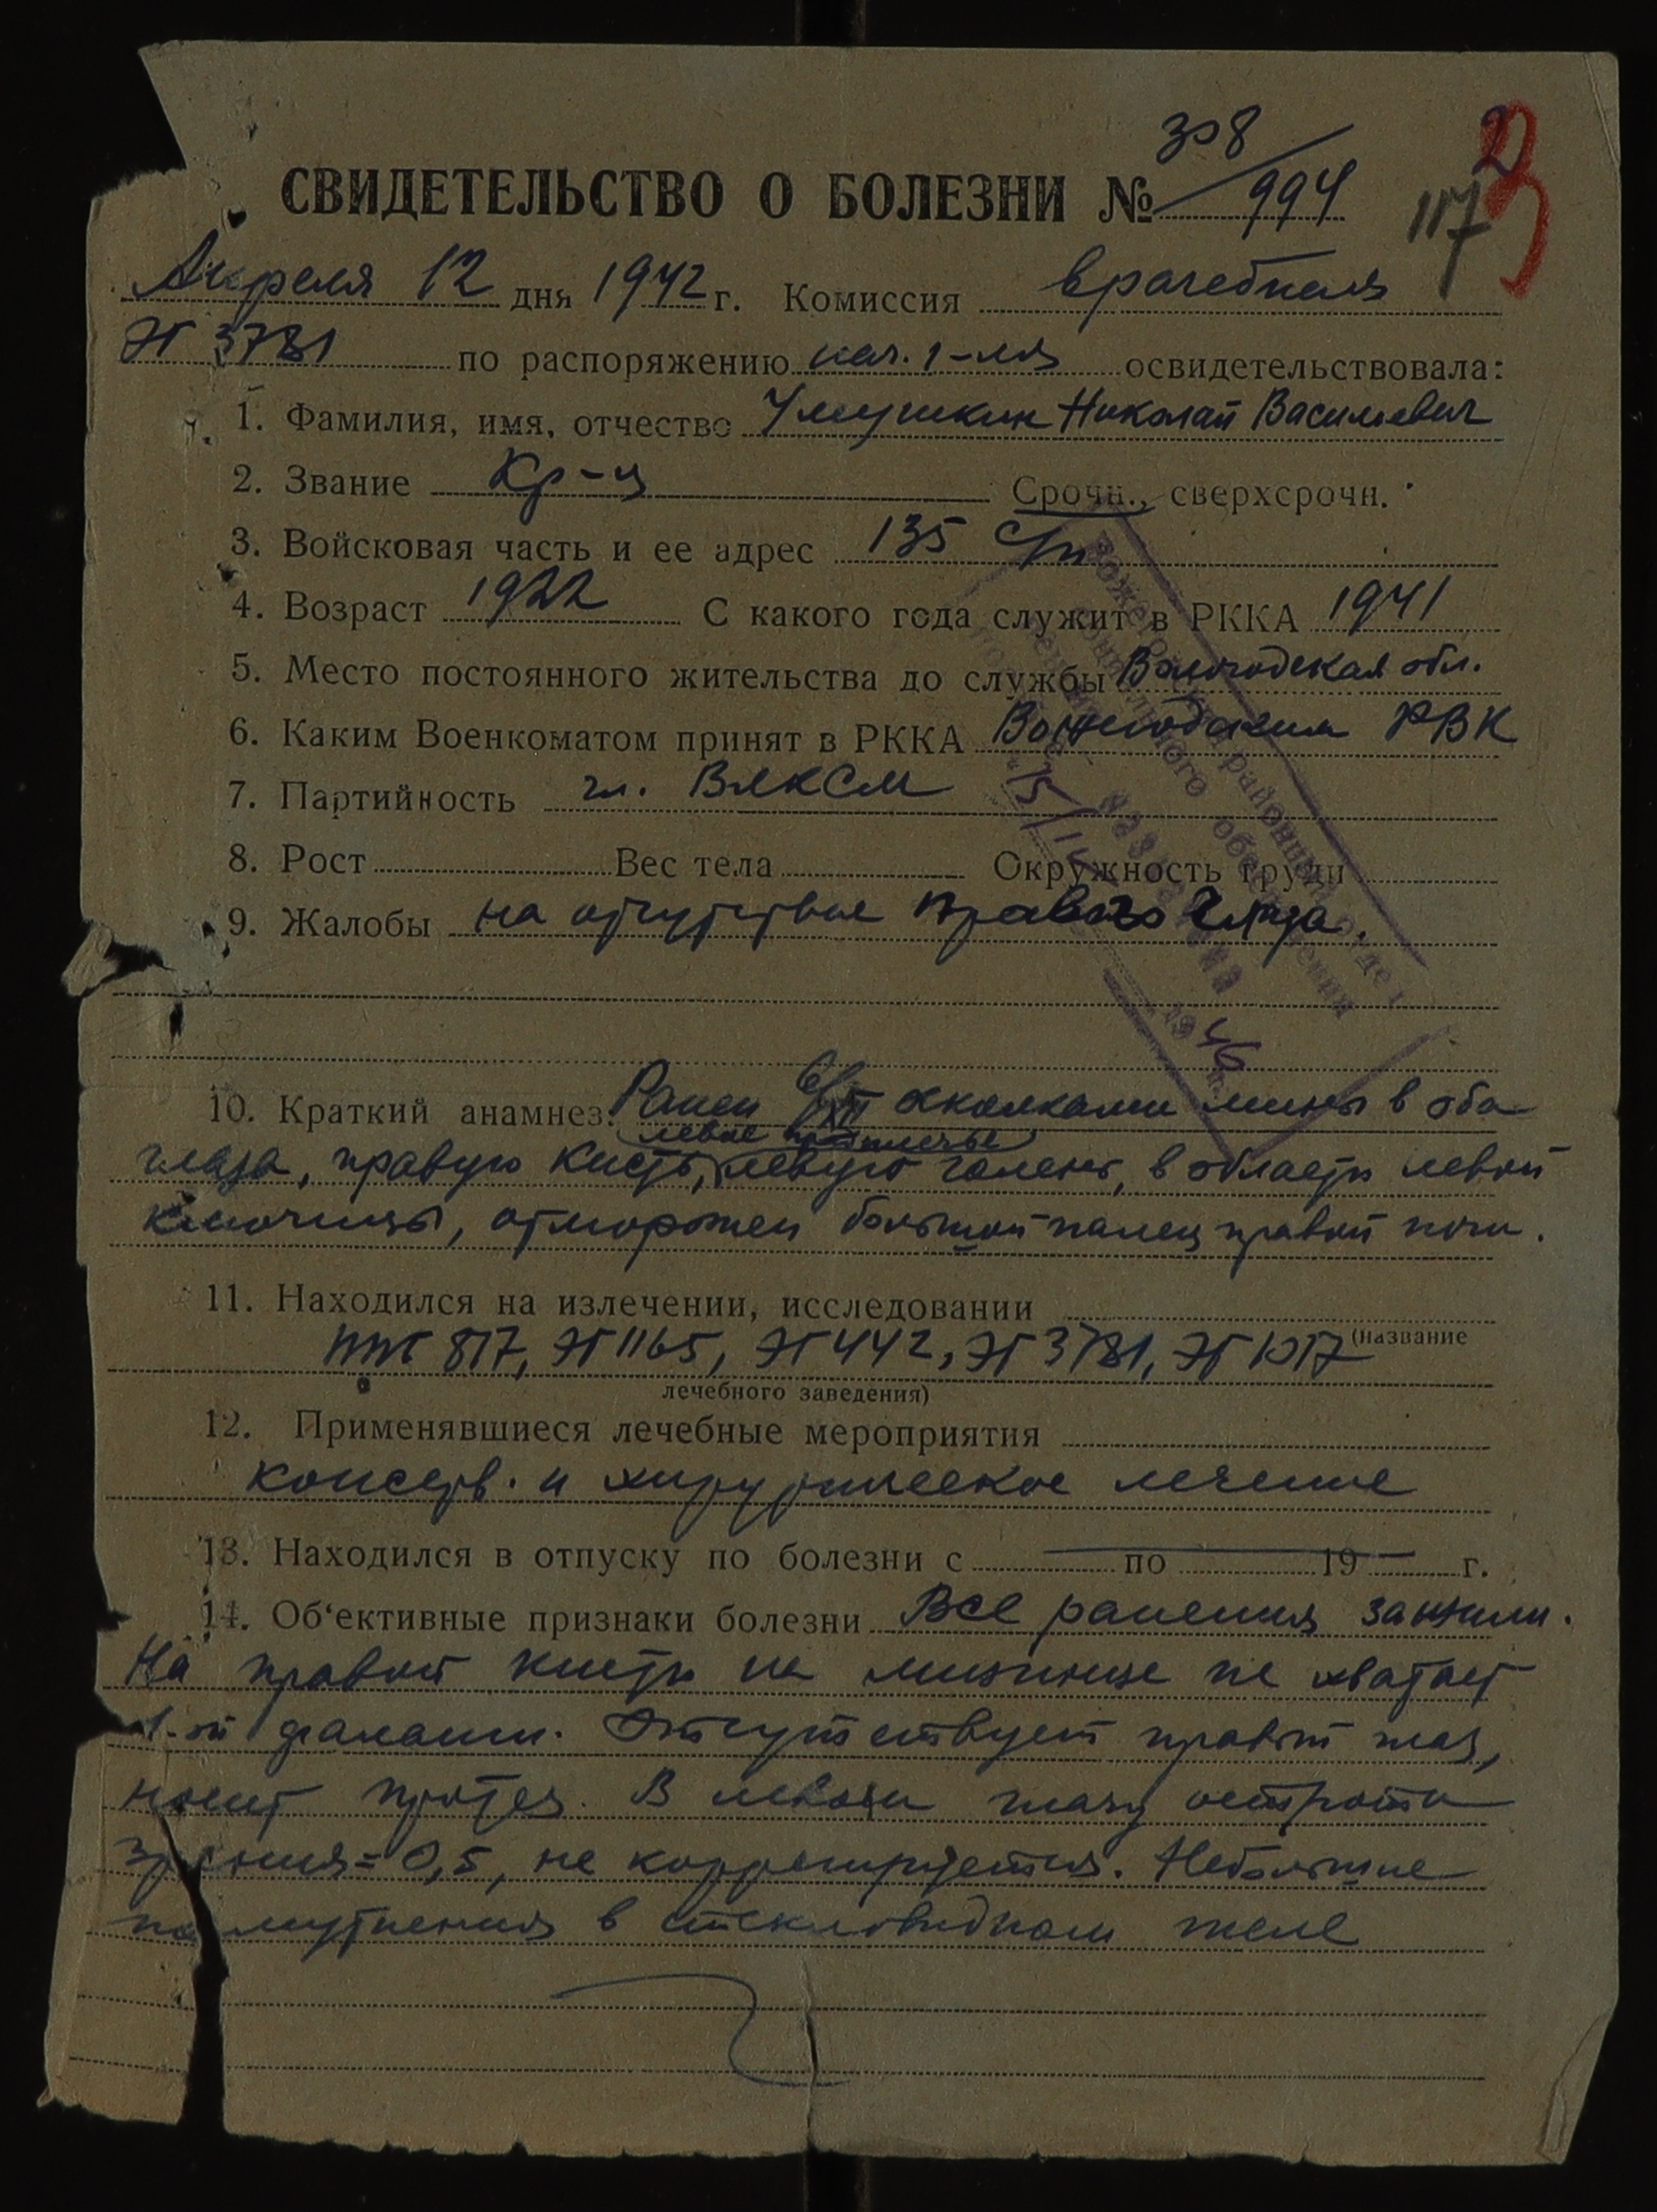 308/994
2
3
117
СВИДЕТЕЛЬСТВО О БОЛЕЗНИ №
Апреля 12 дня 1942 г. Комиссия врачебная
ЭГ 3781 по распоряжению нач. г-ля освидетельствовала:
1. Фамилия, имя, отчество Николай Васильевич
2. Звание Кр-ц Срочн., сверхсрочн.
3. Войсковая часть и ее адрес 135 с/п
4. Возраст 1922 С какого года служит в РККА 1941
5. Место постоянного жительства до службы Вологодская обл.
6. Каким Военкоматом принят в РККА Вожегодским РВК
7. Партийность чл. ВЛКСМ
8. Рост Вес тела Окружность груди
9. Жалобы на отсутствие правого глаза.
10. Краткий анамнез. Ранен 6/XII осколками мины в оба
левое предплечье
глаза, правую кисть, левую голень, в область левой
ключицы, отморожен большой палец правой ноги.
11. Находился на излечении, исследовании
ППГ 817, ЭГ 1165, ЭГ 442, ЭГ 3781, ЭГ 1017 (название
лечебного заведения)
12. Применявшиеся лечебные мероприятия
консерв. и хирургическое лечение
13. Находился в отпуску по болезни с — по 19 — г.
14. Об'ективные признаки болезни Все ранения зажили.
На правой кисти на мизинце не хватает
1-ой фаланги. Отсутствует правый глаз,
носит протез. В левом глазу острота
зрения = 0,5, не корригируется. Небольшие
помутнения в стекловидном теле